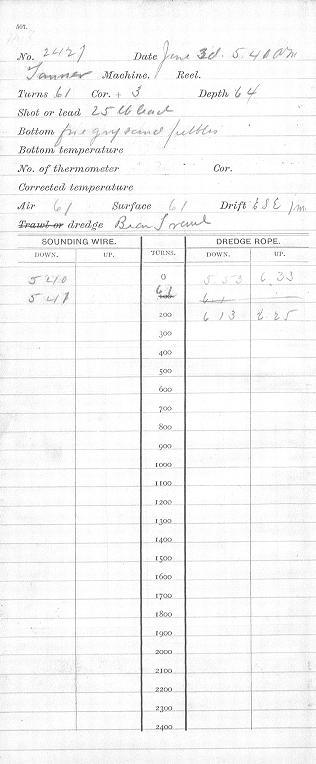 No. 2427 Date June 3d. 5.40 am
Tanner Machine. Reel.
Turns 61 Cor. + 3 Depth 64
Shot or lead 25 lb lead
Bottom fne gry sand pebbles
Bottom temperature
No. of thermometer Cor.
Corrected temperature
Air 61 Surface 61 Drift ESE 1m
Trawl or dredge Beam Trawl
SOUNDING WIRE. TURNS. DREDGE ROPE.
DOWN. UP. DOWN. UP.
5 40 0 5 53 6 33
5 41 61 100
200 6 13 6 25
300
400
500
600
700
800
900
1000
1100
1200
1300
1400
1500
1600
1700
1800
1900
2000
2100
2200
2300
2400